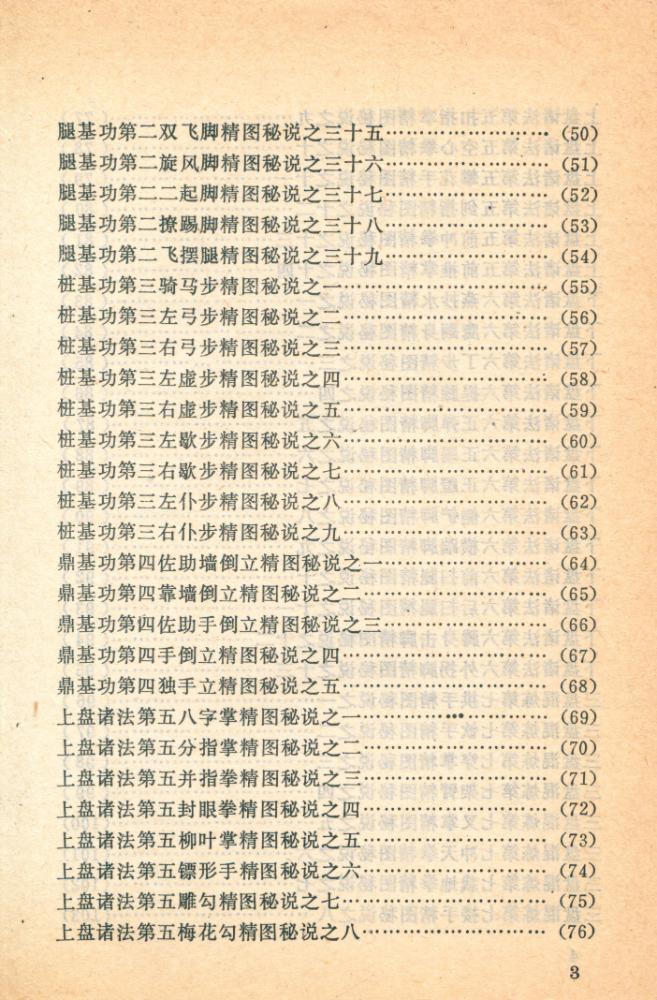 腿基功第二双飞脚精图秘说之三十五……………………(50)
腿基功第二旋风脚精图秘说之三十六……………………(51)
腿基功第二二起脚精图秘说之三十七……………………(52)
腿基功第二撩踢脚精图秘说之三十八……………………(53)
腿基功第二飞摆腿精图秘说之三十九……………………(54)
桩基功第三骑马步精图秘说之一……………………(55)
桩基功第三左弓步精图秘说之二……………………(56)
桩基功第三右弓步精图秘说之三……………………(57)
桩基功第三左虚步精图秘说之四……………………(58)
桩基功第三右虚步精图秘说之五……………………(59)
桩基功第三左歇步精图秘说之六……………………(60)
桩基功第三右歇步精图秘说之七……………………(61)
桩基功第三左仆步精图秘说之八……………………(62)
桩基功第三右仆步精图秘说之九……………………(63)
鼎基功第四佐助墙倒立精图秘说之一……………………(64)
鼎基功第四靠墙倒立精图秘说之二……………………(65)
鼎基功第四佐助手倒立精图秘说之三……………………(66)
鼎基功第四手倒立精图秘说之四……………………(67)
鼎基功第四独手立精图秘说之五……………………(68)
上盘诸法第五八字掌精图秘说之一……………………(69)
上盘诸法第五分指掌精图秘说之二……………………(70)
上盘诸法第五并指拳精图秘说之三……………………(71)
上盘诸法第五封眼拳精图秘说之四……………………(72)
上盘诸法第五柳叶掌精图秘说之五……………………(73)
上盘诸法第五镖形手精图秘说之六……………………(74)
上盘诸法第五雕勾精图秘说之七……………………(75)
上盘诸法第五梅花勾精图秘说之八……………………(76)
3